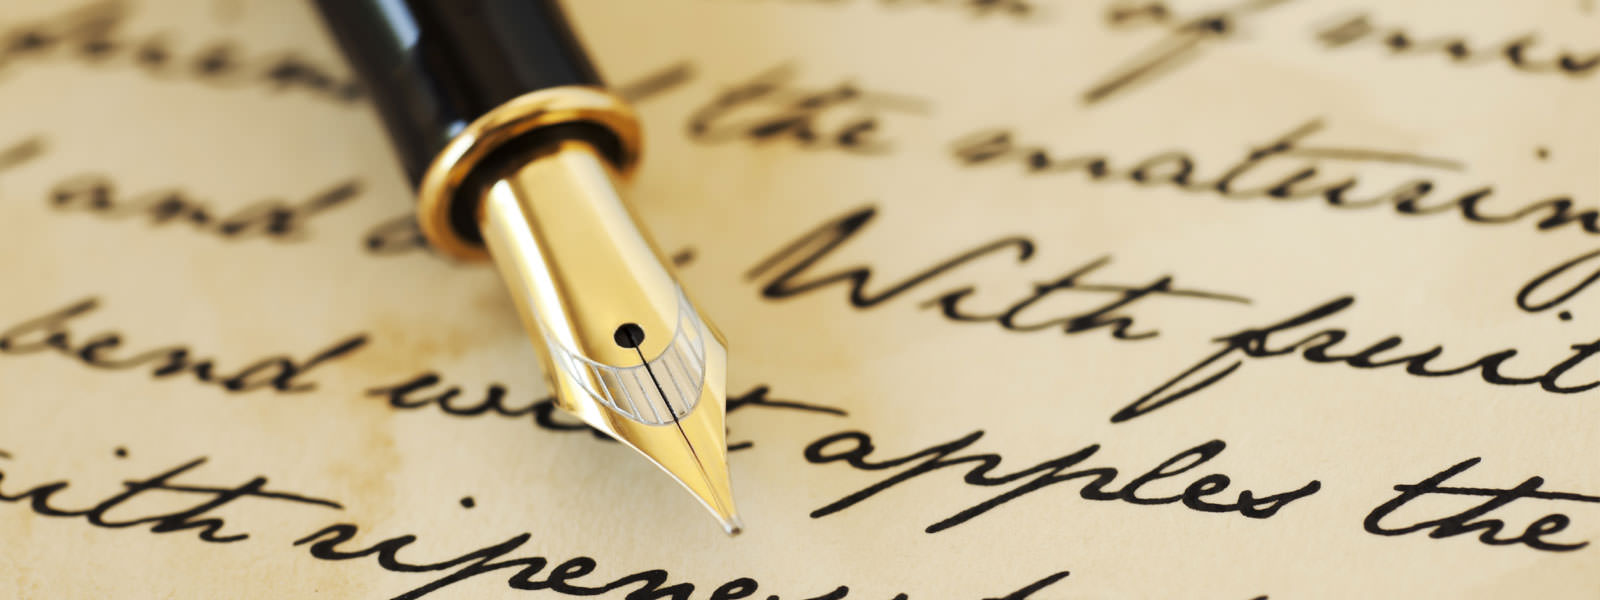 of mis
the maturing
and With fruit
bend apples the
with ripeness